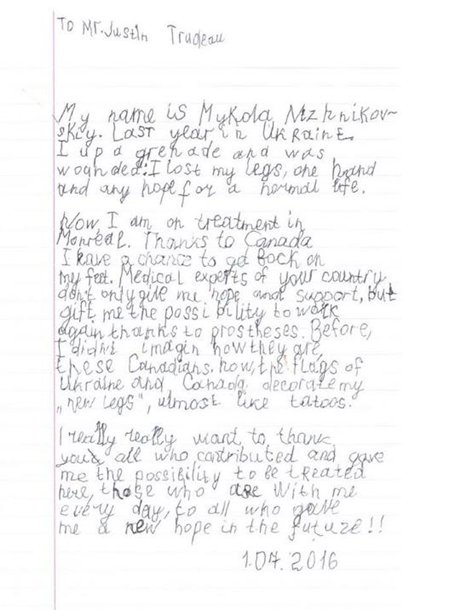 To Mr. Justin Trudeau
My name is Mykola Nizhnikov-
skiy. Last year in Ukraine
I up a grenade and was
woanded: I lost my legs, one hand
and any hope for a normal life.
Now, I am on treatment in
Monreal. Thanks to Canada
I have a chance to go back on
my feet. Medical experts of your country
don't only give me hope and support, but
gift me the possibility to walk
again thanks to prostheses. Before,
I didint imagin how they are,
these Canadians. now, the flags of
Ukraine and Canada decorate my
„new legs", almost like tatoos.
I really really want to thank
you all who contributed and gave
me the possibility to be treated
here, those who are with me
every day, to all who gave
me a new hope in the future!!
1.07.2016